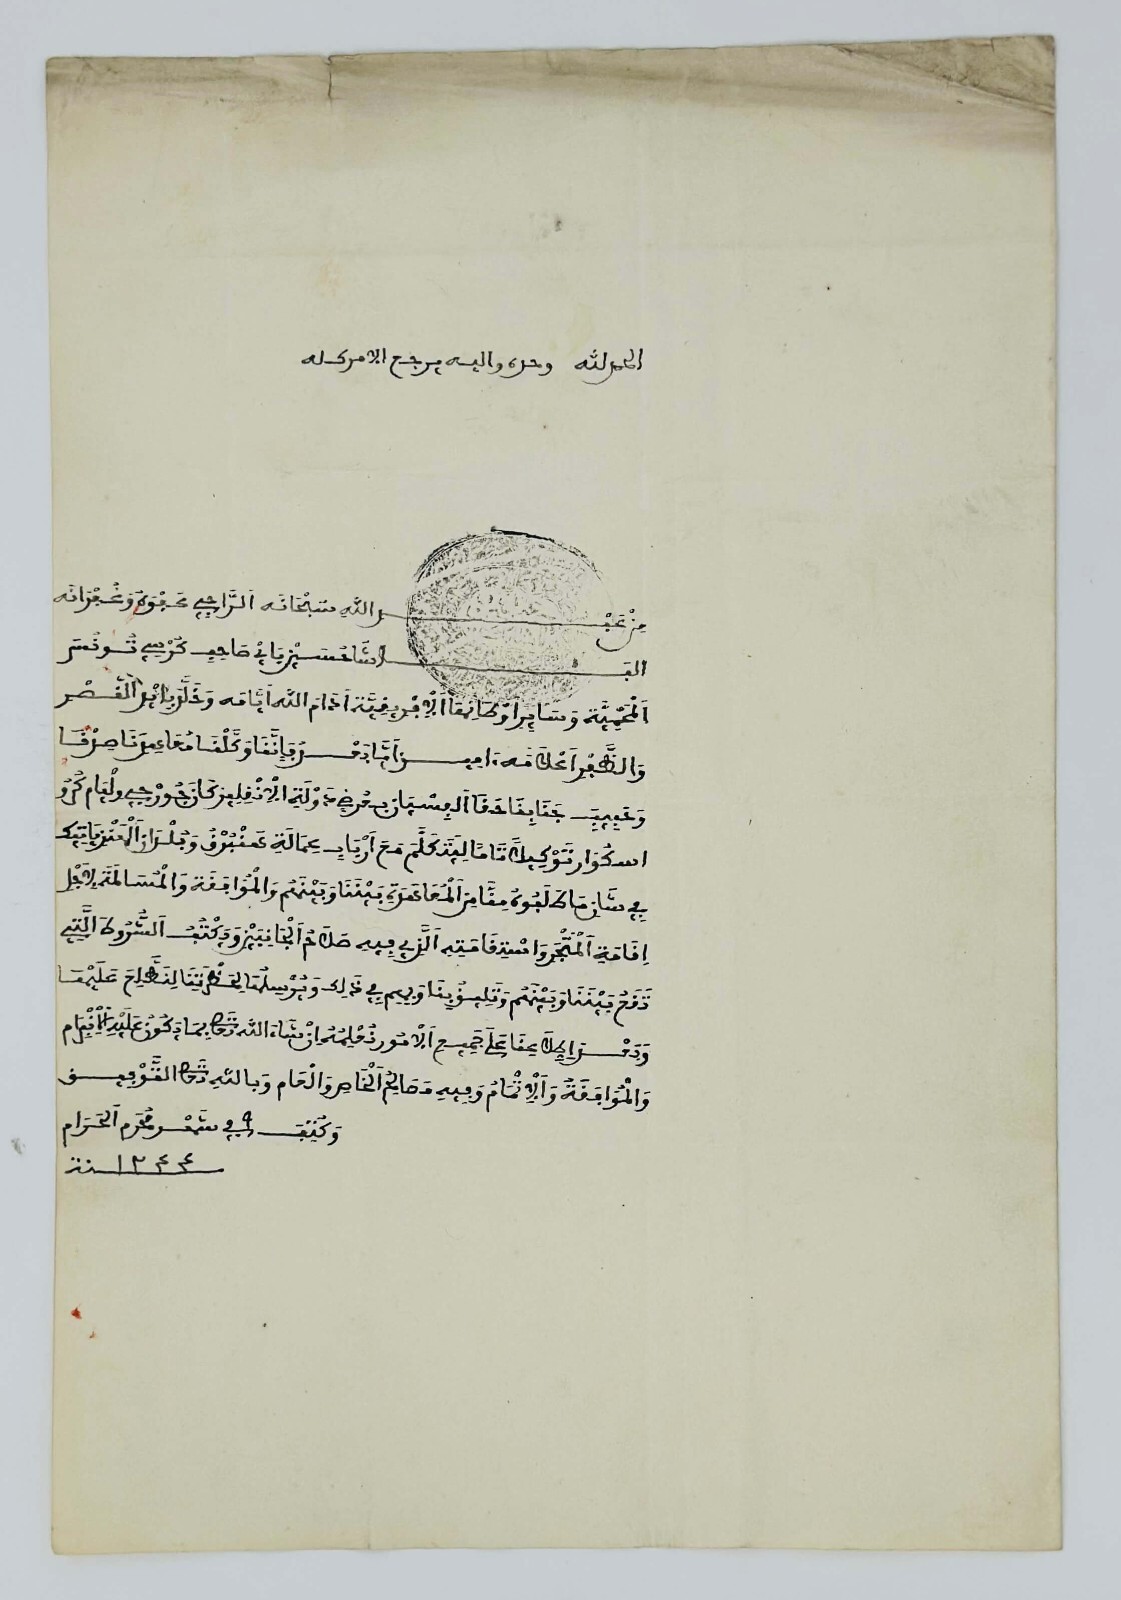 الحمد لله وحده واليه يرجع الامر كله
مِنْ عَبْد اللهِ سُبْحَانَه الرَّاجِي عَفْوَهُ وَغُفْرَانَه
الباشا حُسَيْن بَاي صَاحِب كُرْسِي تُونُسَ
الْمَحْمِيَّة وَسَايِر أَوْطَانِهَا الْإفْرِيقِيَّة أَدَامَ الله أَيَّامَه وَ بِالنَّصْر
وَالظَّفْر أَعْلَامَه، امين أَمَّا بَعْدُ فَإِنَّنَا وَكَّلْنَا مُعَاهِدَنَا صِدْقًا
وَحَبِيبَ جَنَابِنَا حَقًّا الفِسْيَان بيرطي دَوْلَةِ الْإنْقلِيز كَانَ جُورْجِي ولْيَام كُرُو
اسكُوَار تَوْكِيلًا تَامًّا لِيَتَكَلَّمَ مَعَ أَرْبَاب عِمَالَةِ هَمْبُرْق وَبُلْدَان
فِي شَان مَا طَلَبُوهُ مِنَّا مِنَ الْمُعَاهَدَة بَيْنَنَا وَبَيْنَهُم وَالْمُوَافَقَة وَالْمُسَالَمَة لِأَجْلِ
إقَامَةِ الْمَتْجَر وَاسْتِقَامَتِهِ الَّذِي فِيهِ صَلَاحُ الْجَانِبَيْن وَيَكْتُب الشُّرُوط الَّتِي
تَقَعُ بَيْنَنَا وَبَيْنَهُم وَتَلِيقُ بِنَا وَبِهِم فِي ذَلِك وَيُرْسِلُهَا لِحَضْرَتِنَا لِنَطَّلِعَ عَلَيْهَا
وَبَعْدَ اطِّلَاعِنَا عَلَى جَمِيعِ الْأُمُور نُعْلِمُهُ إنْ شَاءَ الله تَعَالَى بِمَا يَكُونُ عَلَيْهِ الْإبْرَام
وَالْمُوَافَقَةُ وَالْإتْمَامُ وَفِيهِ مَصَالِحُ الْخَاصِ وَالْعَام وَبِاللهِ تَعَالَى التَّوْفِيق
وَكُتِبَ فِي شَهْر مُحَرَّم الْحَرَام
سنة ١٢٤٤